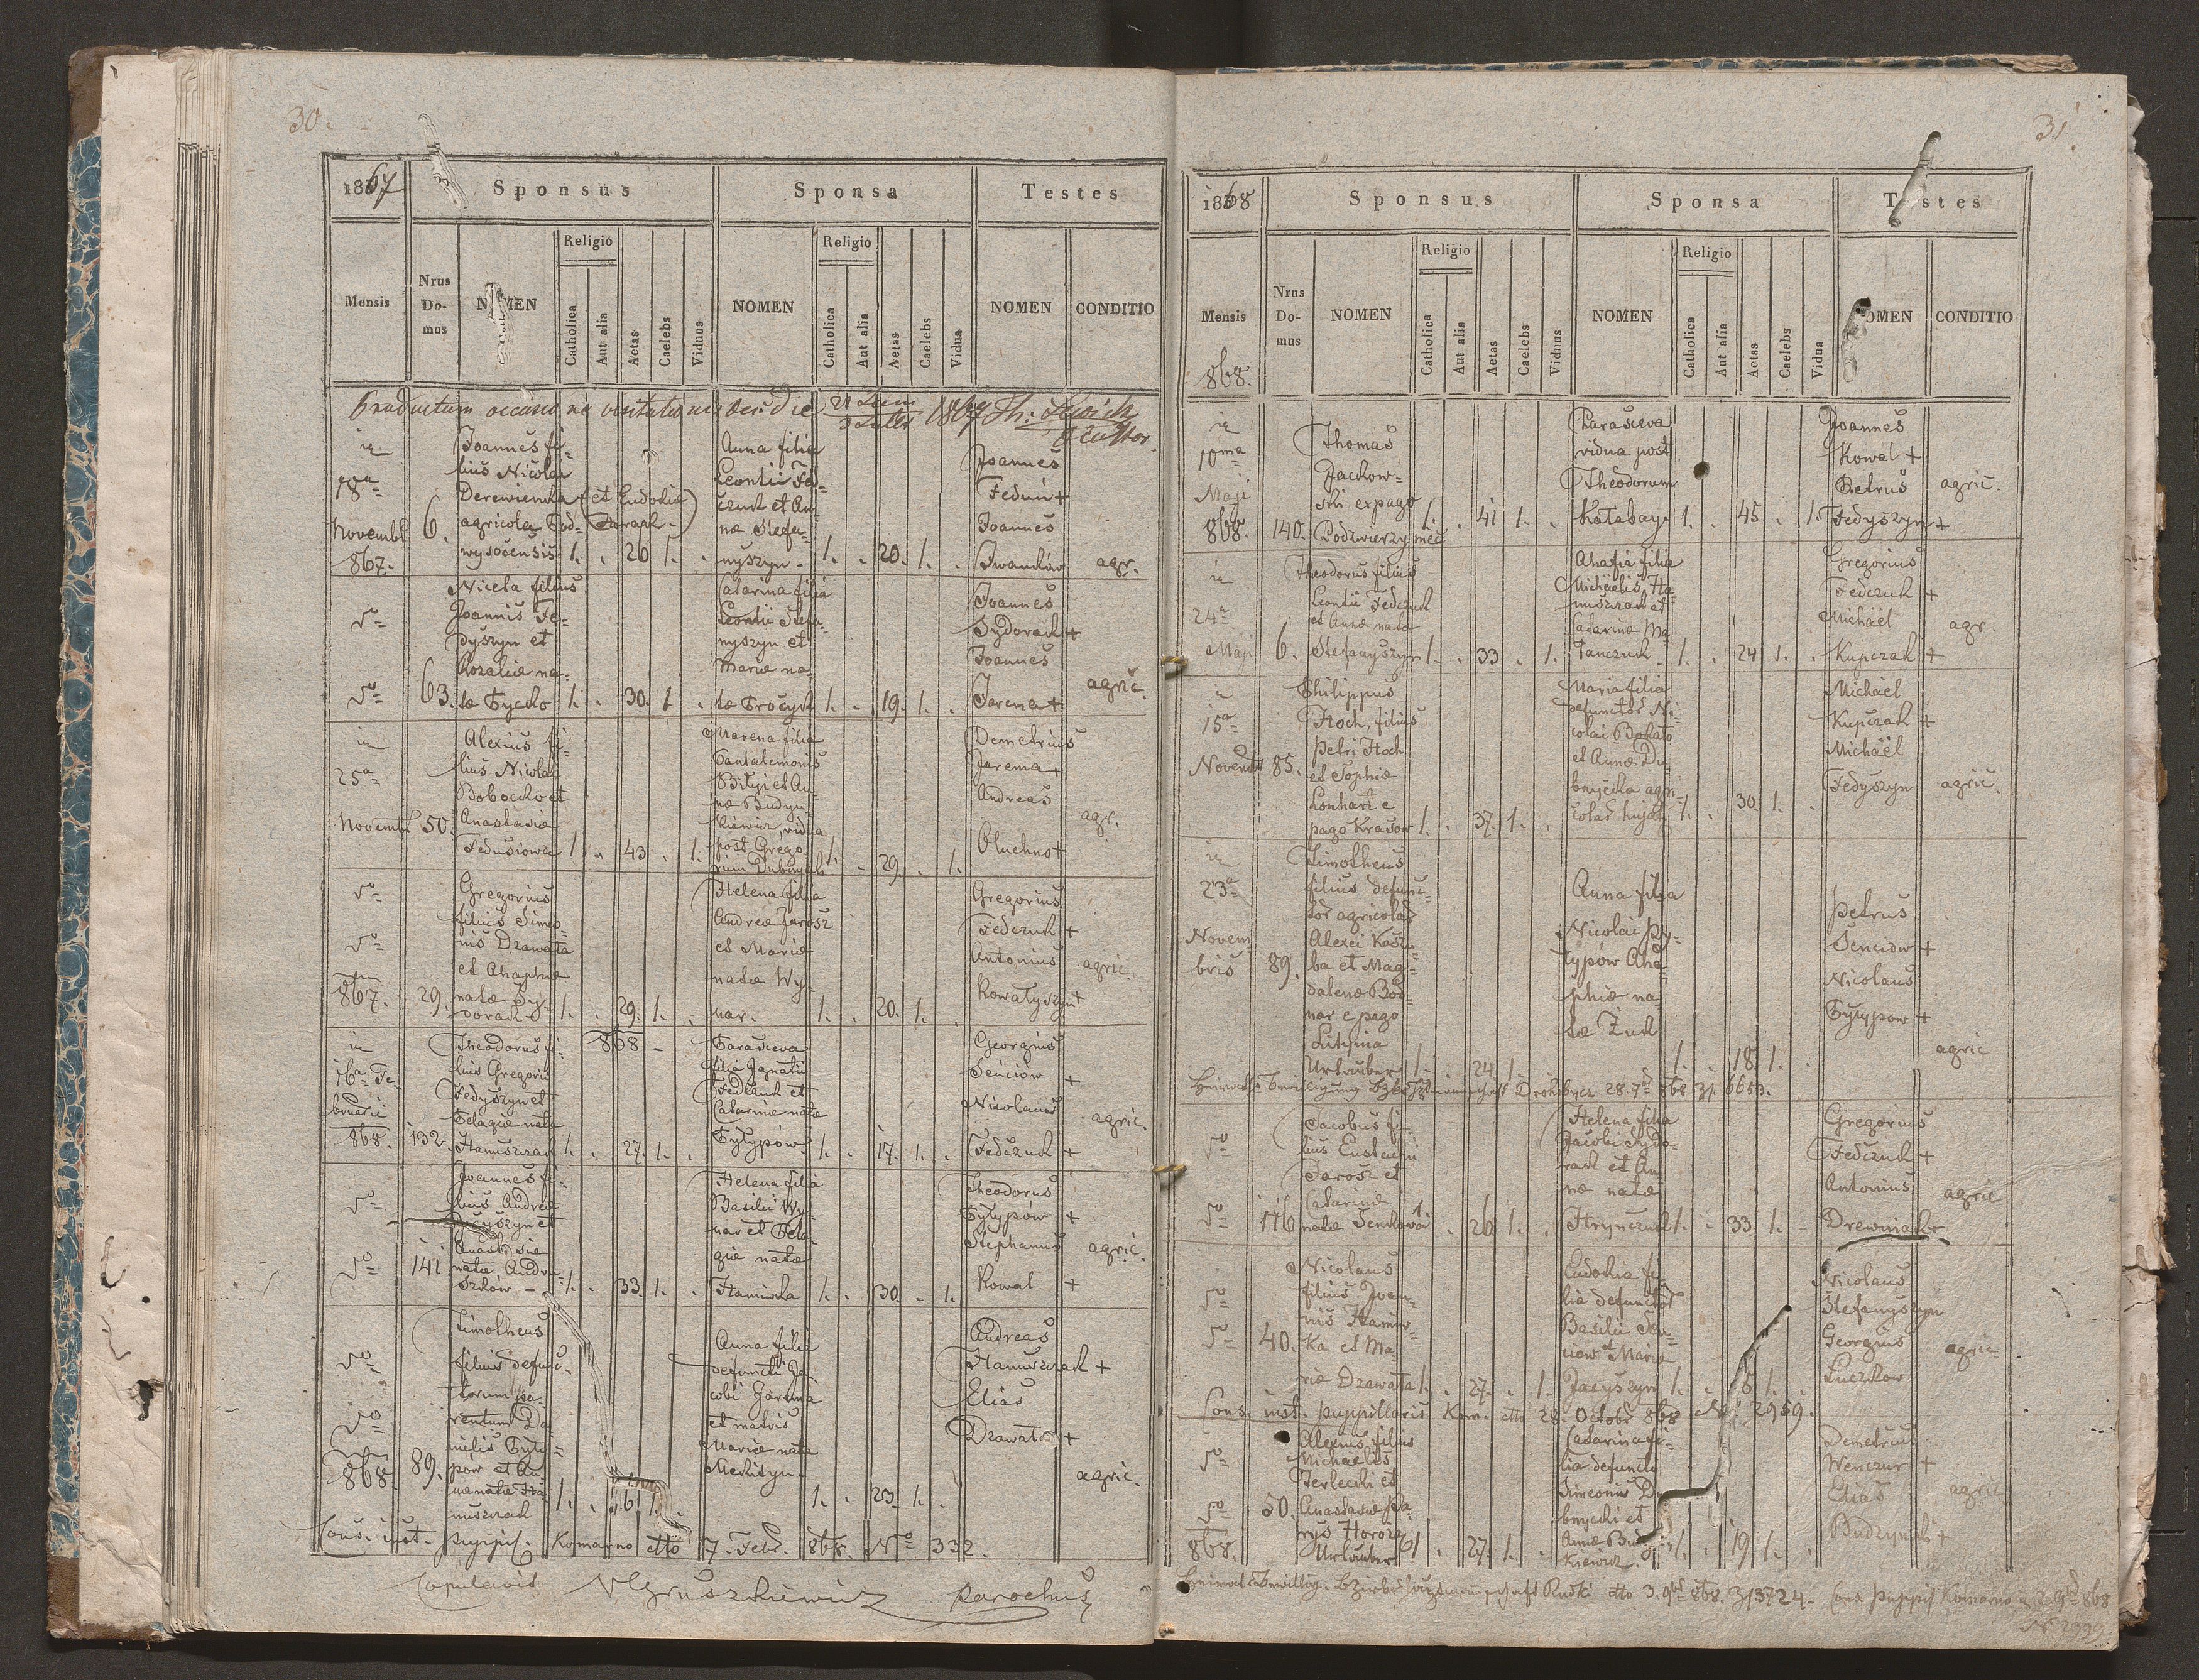 30.
1867
Sponsus
Sponsa
Testes
Mensis
Nrus Domus
NOMEN
Religio
Catholica
Aut alia
Aetas
Caelebs
Viduus
NOMEN
Religio
Catholica
Aut alia
Aetas
Caelebs
Vidua
NOMEN
CONDITIO
Productum occasione visitationis
1867
18a
Novembr
867.
6.
Joannes fi-
lius Nicolai
Derewienka (et Eudokiæ
agricola Pod-
wysocensis 1. . 26 1. .
Anna filia
Leontii Fed-
czuk et An-
næ Stefa-
nyszyn - 1. . 20. 1. .
Joannes
Fedun +
Joannes
Iwanków agr.
63.
Niceta filius
Joannis Fe-
dyszyn et
Rozaliæ na-
tæ Pycko 1. . 30. 1 .
Catarina filia
Leontii Stefa-
nyszyn et
Mariæ na-
tæ Procyk 1. . 19. 1. .
Joannes
Sydorak +
Joannes
Jarema + agric.
25a
Novembr 50.
Alexius fi-
lius Nicolai
Bobecko et
Anastasiæ
Fedusiowa 1. . 43 . 1.
Marena filia
Pantalemonis
Bilyj et An-
næ Budyn
kiewicz, vidua
post Grego
rium Dubnycki 1. . 29. . 1.
Demetrius
Jarema +
Andreas
Oluchno + agr.
867. 29.
Gregorius
filius Simeo-
nis Drawata
et Ahaphiæ
natæ Sy-
dorak - 1. . 29. 1. .
Helena filia
Andreæ Jarosz
et Mariæ
natæ Wy-
nar. 1. . 20. 1. .
Gregorius
Fedczuk +
Antonius
Kowalyszyn + agric.
868 -
16a Fe-
bruarii
868. 132.
Theodorus fi-
lius Gregorii
Fedyszyn et
Pelagiæ natæ
Hanuszczak 1. . 27. 1. .
Parasceva
filia Ignatii
Fedczuk et
Catarinæ natæ
Pylypów 1. . 17. 1. .
Georgius
Senciów +
Nicolaus
Fedczuk + agric.
141
Joannes fi-
lius Andreæ
Jacyszyn et
Anastasiæ
natæ Andru-
szków - 1. . 33. 1. .
Helena filia
Basilii Wy-
nar et Pela-
giæ natæ
Haniwka 1. . 30. . 1.
Theodorus
Pylypów +
Stephanus
Kowal + agric.
868 89.
Timotheus
filius defunc-
torum pa-
rentum Da-
nielis Pyly-
pów et An-
næ natæ Ha-
nuszczak 1.
Anna filia
defuncti Ja-
cobi Jarema
et matris
Mariæ natæ
1. . 23. 1. .
Andreas
Hanuszczak +
Elias
Drawata + agric.
Cons. inst. puppil. Komarno dto 7. Febr. 868. No 332.
Copulavit Gruszkiewicz parochus
31
1868
Sponsus
Sponsa
Testes
Mensis
868.
Nrus Domus
NOMEN
Religio
Catholica
Aut alia
Aetas
Caelebs
Viduus
NOMEN
Religio
Catholica
Aut alia
Aetas
Caelebs
Vidua
NOMEN
CONDITIO
10ma
Maji
868. 140.
Thomas
Jackow-
ski ex pago
Podzwierzyniec 1. . 41 1. .
Parasceva
vidua post
Theodorum
Hatabay 1. . 45 . 1.
Joannes
Kowal +
Petrus
Fedyszyn + agric.
24a
Maji 6.
Theodorus filius
Leontii Fedczuk
et Annæ natæ
Stefanyszyn 1. . 33 . 1.
Ahafia filia
Michaelis Ha-
nuszczak et
Catarinæ Ma-
tanczuk 1. . 24 1. .
Gregorius
Fedczuk +
Michael
Kupczak + agr.
15a
Novembr 85.
Philippus
Hoch, filius
Petri Hoch
et Sophiæ
Lonhart e
pago Krasow 1. . 37. 1. .
Maria filia
defunctor Ni-
colai
et Annæ Du-
bnycka agri-
colar hujat 1. . 30. 1. .
Michael
Kupczak +
Michaël
Fedyszyn agric.
23a
Novem-
bris 89.
Timotheus
filius defunc-
tor agricolar
Alexei Kaszu-
ba et Mag-
dalenæ Bod-
nar e pago
Litynia
Urlauber 1. . 24. 1.
Anna filia
Nicolai Py-
lypów Aha-
phiæ na-
tæ Żuk
1. . 18. 1. .
Petrus
Senciów +
Nicolaus
Pylypow +
agric
Drohobycz 28. 7br 868 Zl. 6653.
116
Jacobus fi-
lius Eustachii
Jarosz et
Catarinæ
natæ Senkowa 1. . 26. 1. .
Helena filia
Jacobi Sydo-
rak et An-
næ natæ
Hrynczuk 1. . 33 1. -
Gregorius
Fedczuk +
Antonius
Drewniak + agric
40.
Nicolaus
filius Joan-
nis Haniw-
ka et Ma-
riæ Drawata 1. . 27. . 1.
Eudokia fi-
lia defunctor
Basilii Sen-
ciow et Mariæ
Jacyszyn 1.
Nicolaus
Stefanyszyn
Georgius
Luczkow agric
Cons. inst. puppillaris Kom. dto 28. Octobr 868 No 2959.
868. 50.
Alexius filius
Michaelis
Terlecki et
Anastasiæ
Horoże
Urlauber 1 . 27. 1. .
Catarina fi-
lia defuncti
Simeonis Du-
bnycki et
Annæ Bud
kiewicz. 1. . 19 1. .
Demetrius
Wenczur +
Elias
Budzyn + agric
Rudki dto 3. 9br 868. Zl 3724. Cons puppil Komarno 2 9br 868
No 2999